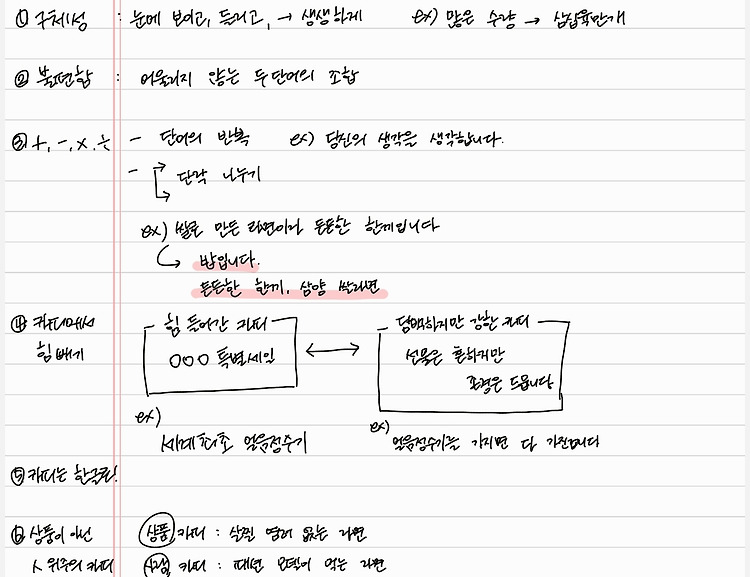 ① 구체성 : 눈에 보이고, 들리고, → 생생하게 ex) 많은 수량 → 삼삼육만개
② 불편함 : 어울리지 않는 두 단어의 조합
③ +, -, x, ÷ - 단어의 반복 ex) 당신의 생각을 생각합니다.
- 단락 나누기
ex) 쌀로 만든 라면이라 든든한 한끼입니다
밥입니다.
든든한 한끼, 삼양 쌀라면
④ 카피에서 힘 들어간 카피 담백하지만 강한 카피
힘 빼기 ○○○ 특별세일 ↔ 선물은 흔하지만
존경은 드뭅니다
ex) ex)
세계최초 얼음정수기 얼음정수기를 가지면 다 가진겁니다
⑤ 카피는 한글로!
⑥ 상품이 아닌 상품 카피 : 살찔 염려 없는 라면
人 위주의 카피 사람 카피 : 패션 모델이 먹는 라면